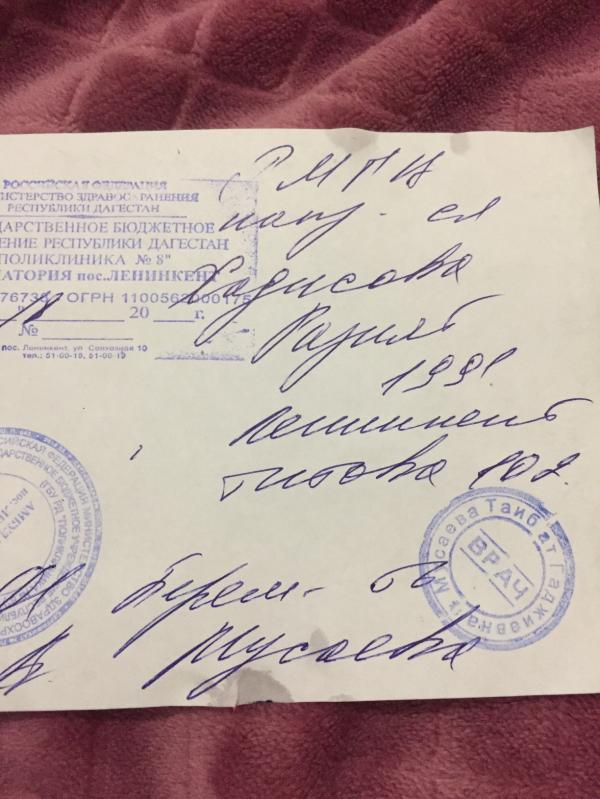 РОССИЙСКАЯ ФЕДЕРАЦИЯ
ИСТЕРСТВО ЗДРАВООХРАНЕНИЯ
РЕСПУБЛИКИ ДАГЕСТАН
ДАРСТВЕННОЕ БЮДЖЕТНОЕ
ЕНИЕ РЕСПУБЛИКИ ДАГЕСТАН
ПОЛИКЛИНИКА № 8"
АТОРИЯ пос.ЛЕНИНКЕНТ
76738 ОГРН 1100562000175
20 г.
№
пос. Ленинкент, ул
тел.: 51-00-15, 51-00-19
РМПЦ
напр-ся
Хадисова
Разият
1991
Ленинкент
Титова 102
Берем-ть
Мусаева
Мусаева Таибат Гаджиевна
ВРАЧ